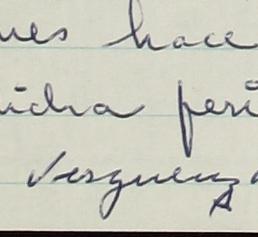 ues hace
icha peri
Verguenza